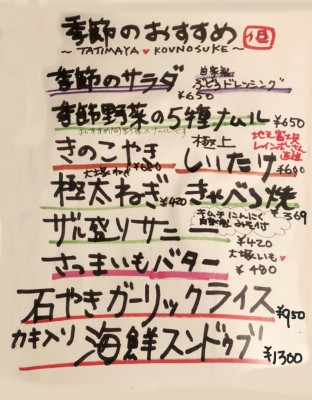 季節のおすすめ
~ TATIMAYA ♥ KOUNOSUKE ~
季節のサラダ
自家製
ぶどうドレッシング
¥650
季節野菜の5種ナムル ¥650
きのこやき ¥680
極上
しいたけ ¥600
地元富士見
大塚ねぎ
極太ねぎ ¥420
きゃべつ焼 ¥369
ザル盛りサニー ¥420
キムチにんにく
みそ付
大塚いも♥
さつまいもバター ¥480
石やきガーリックライス ¥950
カキ入り 海鮮スンドゥブ ¥1300